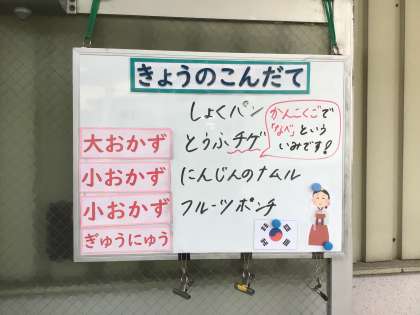 きょうのこんだて
しょくパン
大おかず とうふチゲ
かんこくごで
「なべ」という
いみです!
小おかず にんじんのナムル
小おかず フルーツポンチ
ぎゅうにゅう